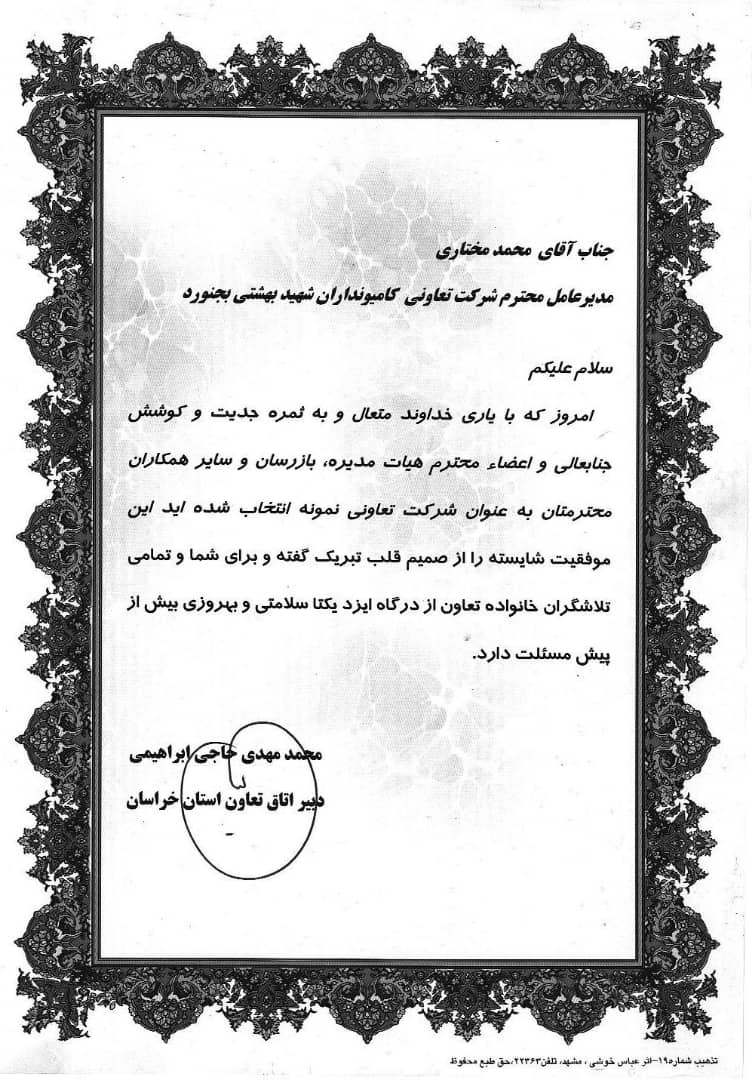 جناب آقای محمد مختاری
مدیرعامل محترم شرکت تعاونی کامیونداران شهید بهشتی بجنورد
سلام علیکم
امروز که با یاری خداوند متعال و به ثمره جدیت و کوشش
جنابعالی و اعضاء محترم هیات مدیره، بازرسان و سایر همکاران
محترمتان به عنوان شرکت تعاونی نمونه انتخاب شده اید این
موفقیت شایسته را از صمیم قلب تبریک گفته و برای شما و تمامی
تلاشگران خانواده تعاون از درگاه ایزد یکتا سلامتی و بهروزی بیش از
پیش مسئلت دارد.
محمد مهدی حاجی ابراهیمی
دبیر اتاق تعاون استان خراسان
تذهیب شماره۱۹-اثر عباس خوشی ، مشهد، تلفن۲۲۳۶۳،حق طبع محفوظ